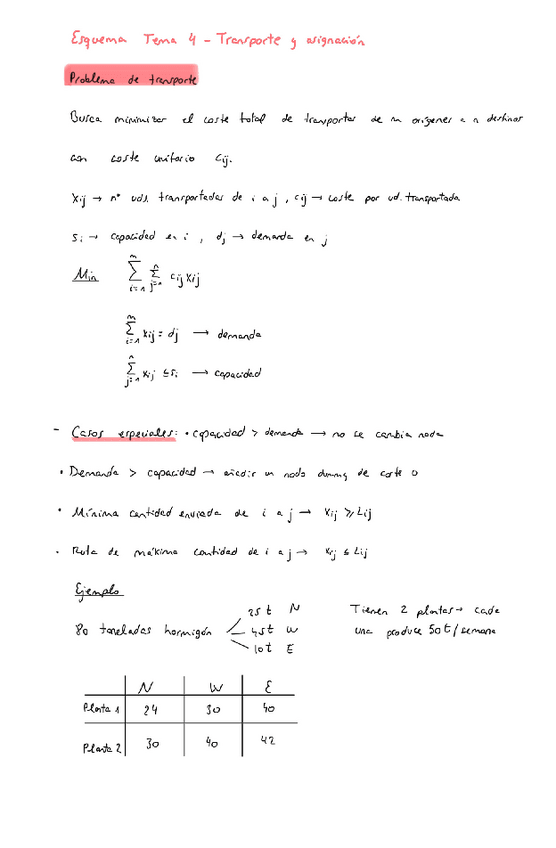 Esquema Tema 4 - Transporte y asignación
Problema de transporte
Busca minimizar el coste total de transportar de m orígenes a n destinos
con coste unitario cij.
Xij → nº uds. transportadas de i a j, cij → coste por ud. transportada
si → capacidad en i, dj → demanda en j
Min ∑_{i=1}^{m} ∑_{j=1}^{n} cij xij
∑_{i=1}^{m} xij = dj → demanda
∑_{j=1}^{n} xij ≤ si → capacidad
- Casos especiales: • capacidad > demanda → no se cambia nada
• Demanda > capacidad → añadir un nodo dummy de coste 0
• Mínima cantidad enviada de i a j → xij ≥ Lij
• Ruta de máxima cantidad de i a j → xij ≤ Lij
Ejemplo
80 toneladas hormigón
25t N
45t W
10t E
Tienen 2 plantas → cada
una produce 50t/semana
N W E
Planta 1 24 30 40
Planta 2 30 40 42